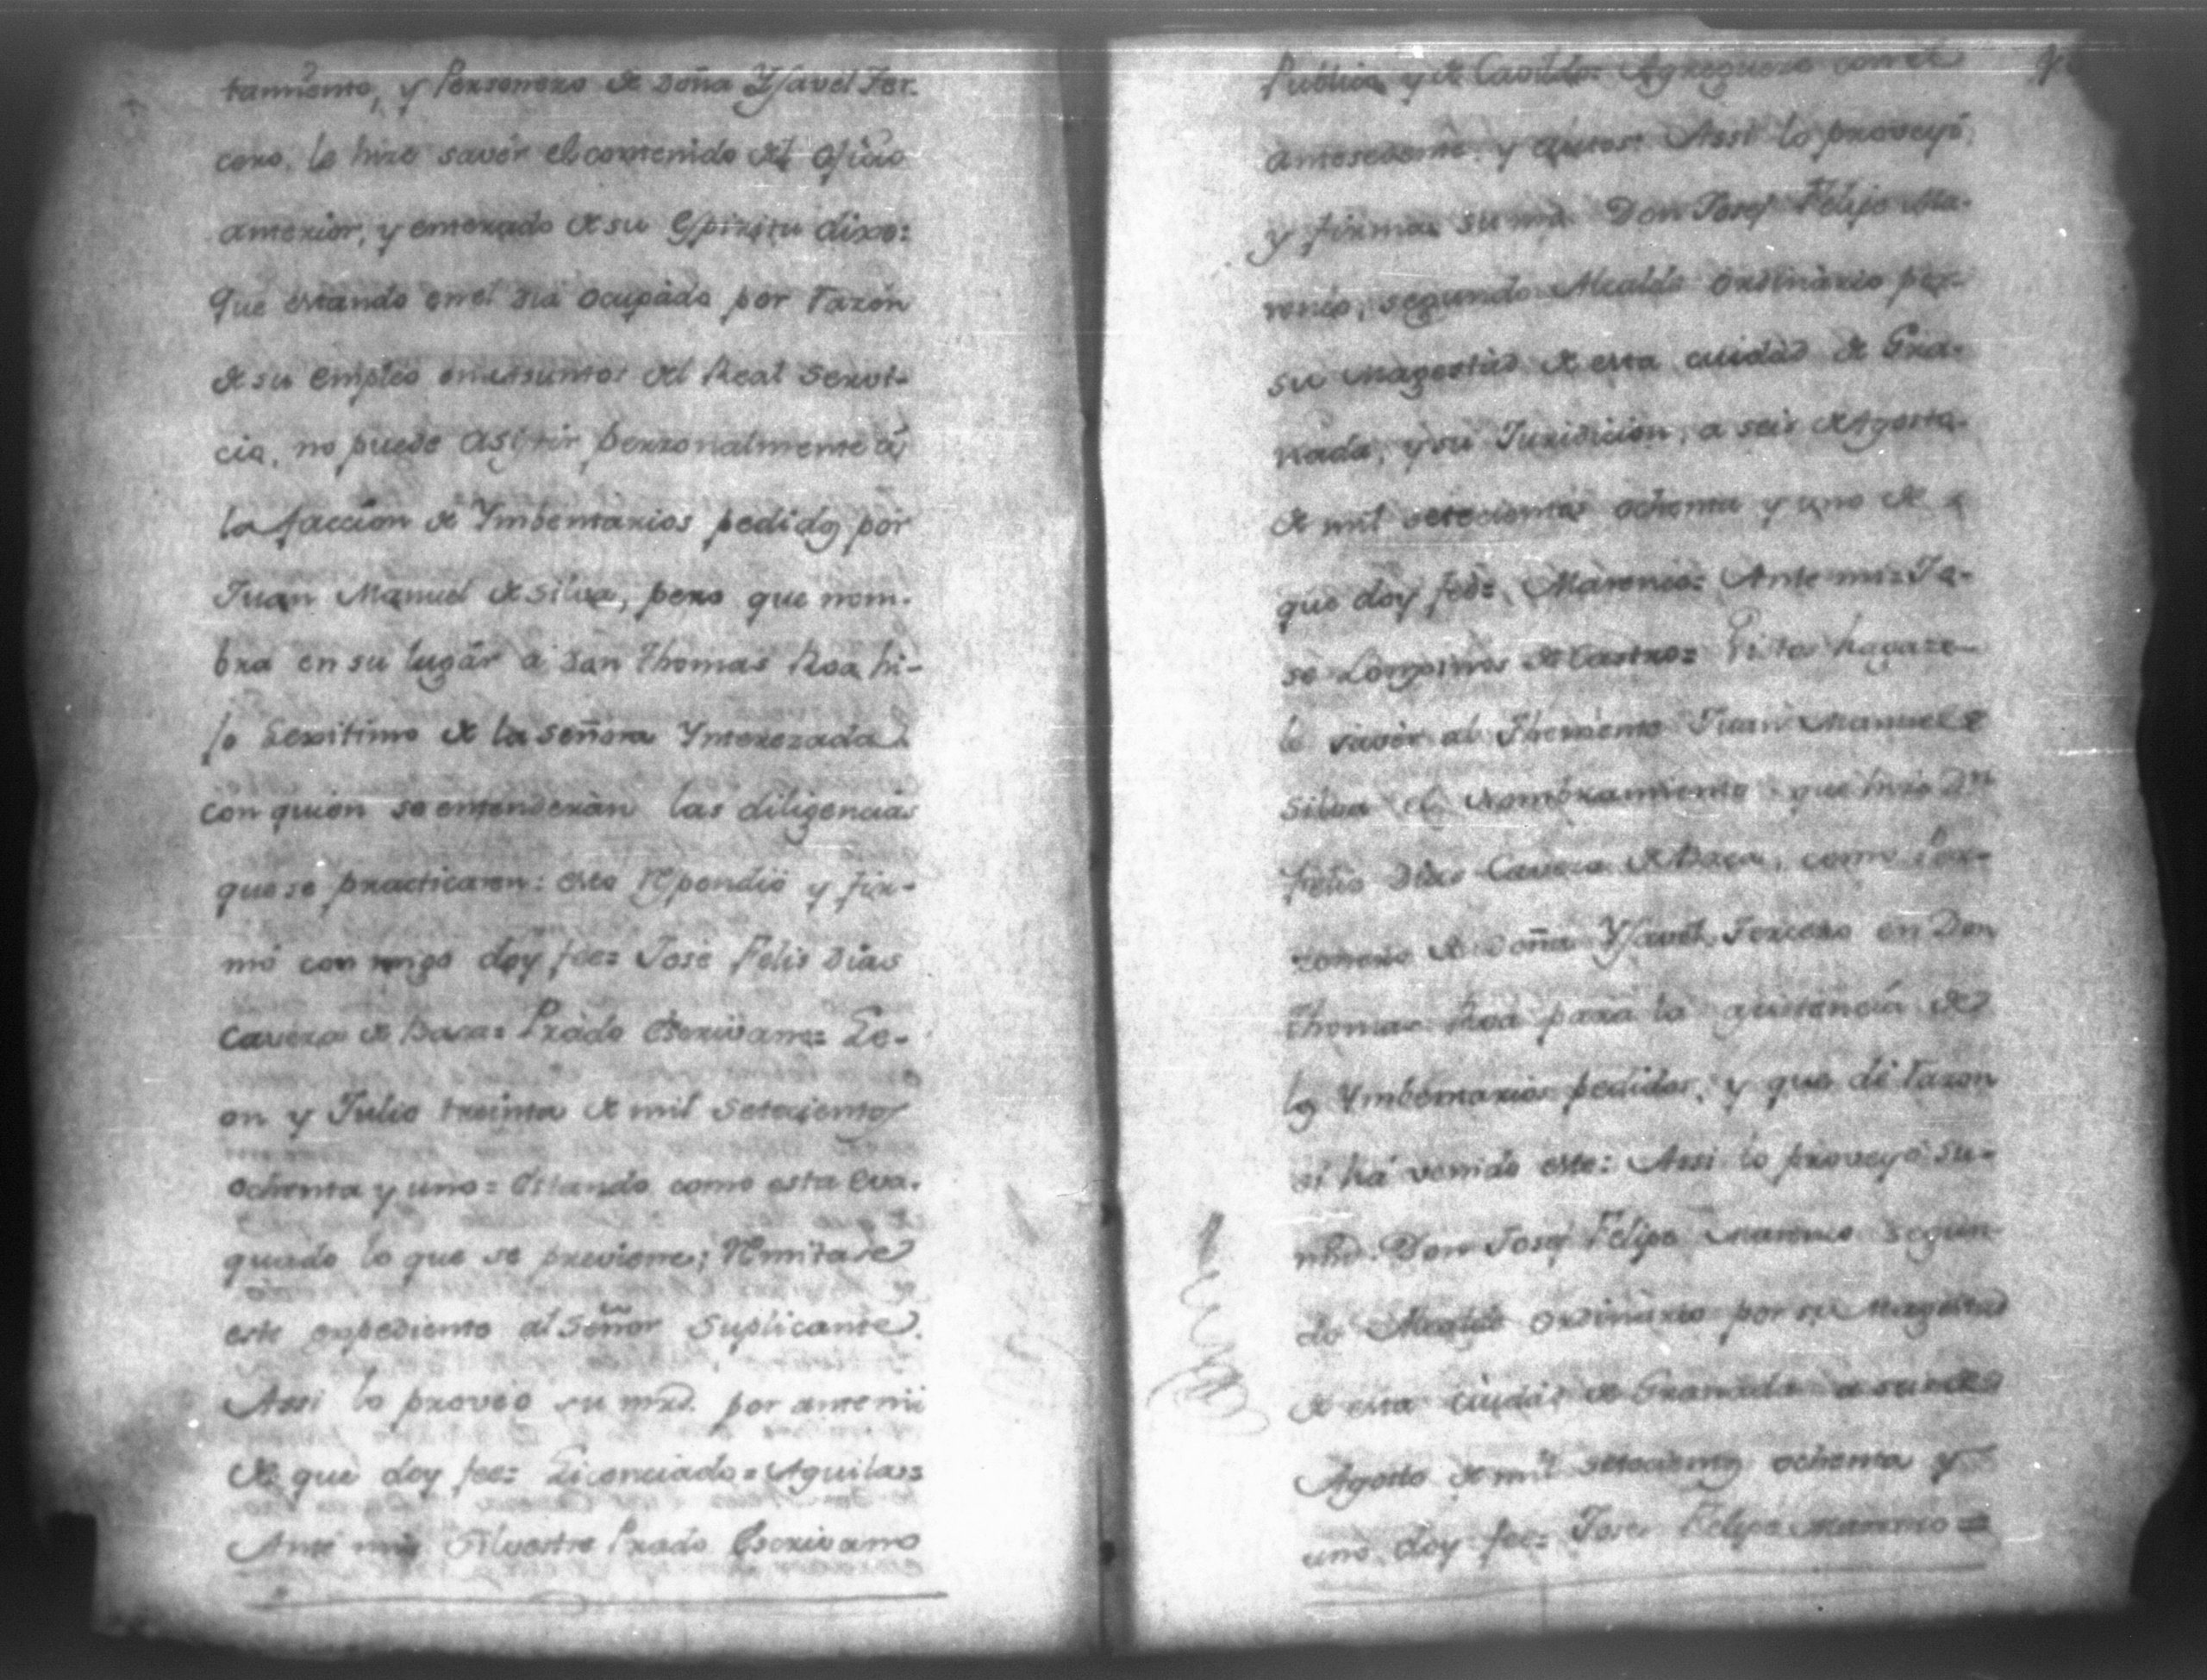 tamiento, y Personero de Doña Ysavel Ter-
cero, le hize savér el contenido del oficio
anterior, y enterado de su Espiritu dixo:
Que estando en el dia ocupado por razón
de su empleo en assuntos del Real Servi-
cio, no puede asistir perzonalmente á
la facción de Ymbentarios pedidos por
Juan Manuel de Silva, pero que nom-
bra en su lugár á Don Thomas Roa hi-
jo Lexitimo de la señora Ynterezada
con quien se entenderán las diligencias
que se practicaren: esto respondió y fir-
mó con migo doy fee= José Felis Dias
Caveza de Baca= Prado Escrivano= Le-
on y Julio treinta de mil setecientos
ochenta y uno= Estando como esta eva-
quado lo que se previene; Remitase
este expediente al Señor Suplicante.
Assi lo proveo su mrd. por ante mi
de que doy fee= Licenciado= Aguilar=
Ante mi= Silvestre Prado Escrivano
Publico y de Cavildo= Agreguese con el
antesedente, y autos: Assi lo proveyó,
y firma su md. Don Josef Felipe Ma-
renco, segundo Alcalde ordinario por
su Magestad de esta ciudad de Gra-
nada, y su Juridicion, a seis de Agosto
de mil setecientos ochenta y uno de
que doy fee= Marenco= Ante mi= Jo-
se Longinos de Castro= Vistos hagase
le savér al Theniente Juan Manuel de
Silva el nombramiento que hizo Dn
Felis Dias Caveza de Baca, como Per-
zonero de Doña Ysavel Tercero en Don
Thomas Roa para la asistencia de
los Ymbentarios pedidos, y que dé razon
si há venido este: Assi lo proveyó su
mrd. Don Josef Felipe Marenco segun-
do Alcalde ordinario por su Magestad
de esta ciudad de Granada a seis de
Agosto de mil setecientos ochenta y
uno doy fee= Jose Felipe Marenco=